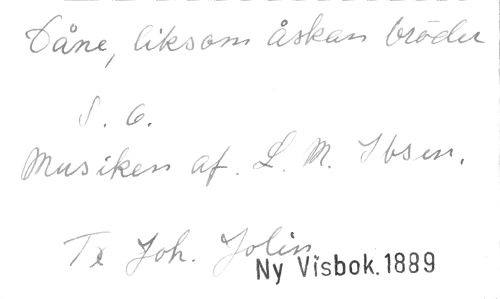 Dåne, liksom åskan bröder
S. O.
Musiken af. L. M. Ibsen.
Te Joh. Jolin
Ny Visbok. 1889